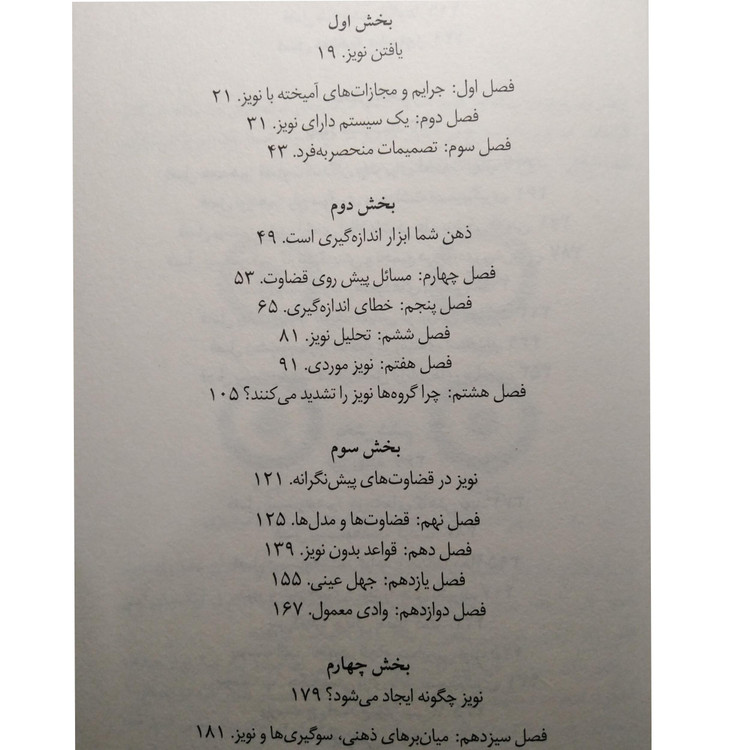 بخش اول
یافتن نویز. ۱۹
فصل اول: جرایم و مجازات‌های آمیخته با نویز. ۲۱
فصل دوم: یک سیستم دارای نویز. ۳۱
فصل سوم: تصمیمات منحصربه‌فرد. ۴۳
بخش دوم
ذهن شما ابزار اندازه‌گیری است. ۴۹
فصل چهارم: مسائل پیش روی قضاوت. ۵۳
فصل پنجم: خطای اندازه‌گیری. ۶۵
فصل ششم: تحلیل نویز. ۸۱
فصل هفتم: نویز موردی. ۹۱
فصل هشتم: چرا گروه‌ها نویز را تشدید می‌کنند؟ ۱۰۵
بخش سوم
نویز در قضاوت‌های پیش‌نگرانه. ۱۲۱
فصل نهم: قضاوت‌ها و مدل‌ها. ۱۲۵
فصل دهم: قواعد بدون نویز. ۱۳۹
فصل یازدهم: جهل عینی. ۱۵۵
فصل دوازدهم: وادی معمول. ۱۶۷
بخش چهارم
نویز چگونه ایجاد می‌شود؟ ۱۷۹
فصل سیزدهم: میان‌برهای ذهنی، سوگیری‌ها و نویز. ۱۸۱